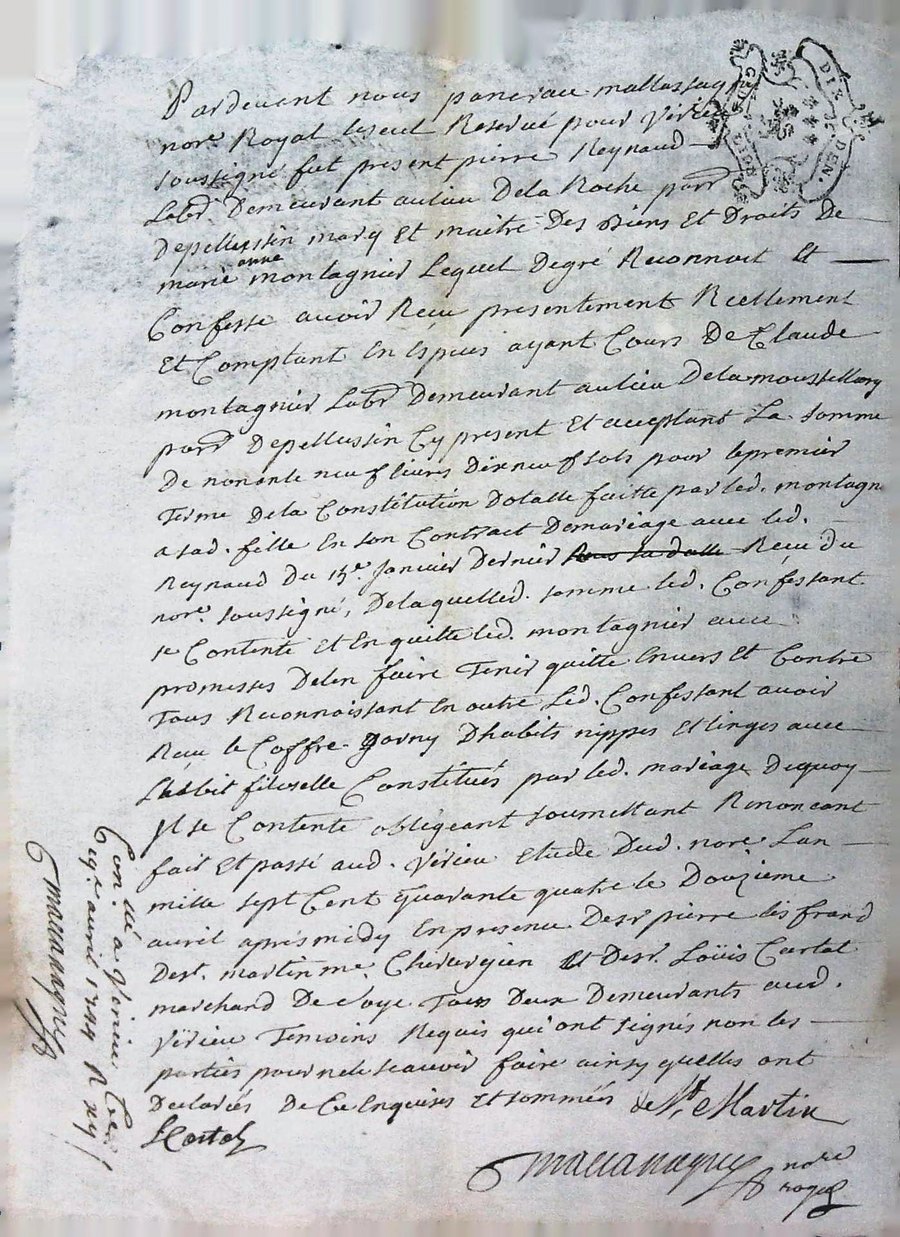 Pardevant nous pancrace
nore. Royal le seul Reservé pour Virieu
soussigné fut present pierre Reynaud
Labr Demeurant au lieu De la Roche parr
De pellussin mary Et maitre Des Biens Et Droits De
marie anne montagnier Lequel De gré Reconnoit Et
Confesse avoir Reçu presentement Réellement
Et Comptant En Especes ayant Cours De Claude
montagnier Labr Demeurant au lieu De la
parr De pellussin Cy present Et acceptant La somme
De nonante neuf livres Dix neuf sols pour le premier
Terme De la Constitution Dotalle faitte par led. montagn
a sad. fille En son Contract De mariage avec led.
Reynaud Du 15e. Janvier Dernier Reçu Du
nore. soussigné, De laquelle d. somme led. Confessant
se Contente Et En quitte led. montagnier avec
promesses De l'en faire Tenir quitte Envers Et Contre
Tous Reconnoissant En outre Led. Confessant avoir
Reçu le Coffre garny D'habits nippes Et linges avec
L'habit filoselle Constitués par led. mariage De quoy
Il se Contente obligeant soumettant Renonçant
fait Et passé aud. Virieu Etude Dud. nore. Lan
mille sept Cent Quarante quatre le Douzieme
avril après midy En presence De sr pierre
De st. martin me. Chirurgien Et De sr. Loüis Cartal
marchand De soye Tous Deux Demeurants aud.
Virieu Temoins Requis qui ont signés non les
parties pour ne le sçavoir faire ainsy quelles ont
Declarées De Ce Enquises Et sommées De St. Martin
LCartal
nore
royal
Con. lé à Virieu Ce
avril 1744 R